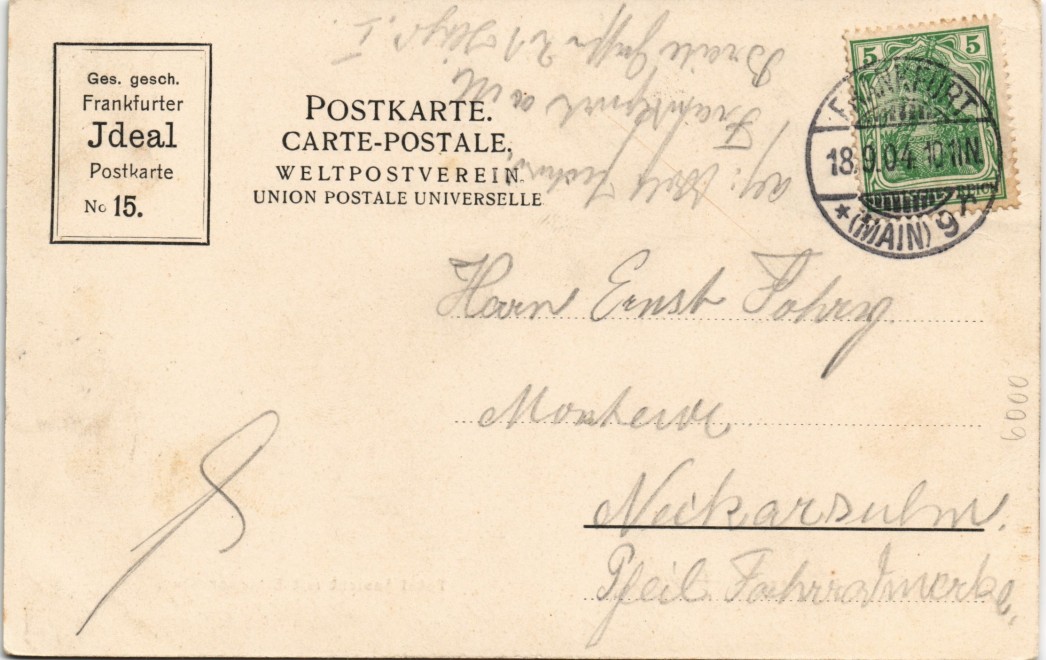 Ges. gesch.
Frankfurter
Jdeal
Postkarte
No 15.
POSTKARTE.
CARTE-POSTALE.
WELTPOSTVEREIN.
UNION POSTALE UNIVERSELLE
5 5
REICH
FRANKFURT
18.9.04 10-11N.
* (MAIN) 9
Frankfurt a
Herrn Ernst Fahrg
Monteur
Neckarsulm.
Pfeil Fahrradwerke,
6000